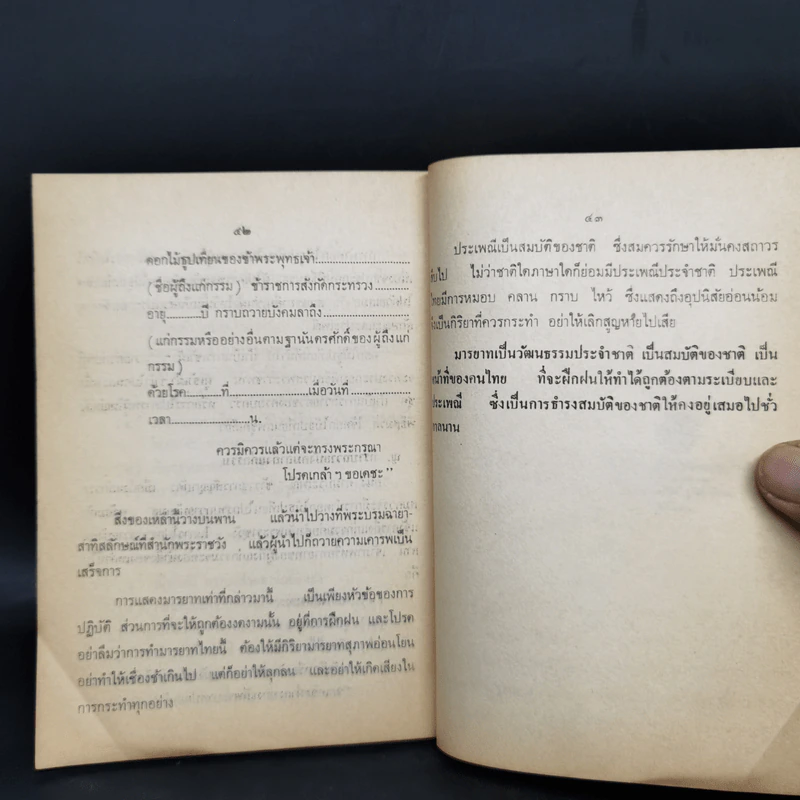 ๔๒
ดอกไม้ธูปเทียนของข้าพระพุทธเจ้า............................
(ชื่อผู้ถึงแก่กรรม) ข้าราชการสังกัดกระทรวง................
อายุ..........ปี กราบถวายบังคมลาถึง.........................
(แก่กรรมหรืออย่างอื่นตามฐานันดรศักดิ์ของผู้ถึงแก่
กรรม)
ด้วยโรค..........ที่......................เมื่อวันที่..................
เวลา......................น.
ควรมิควรแล้วแต่จะทรงพระกรุณา
โปรดเกล้า ฯ ขอเดชะ"
สิ่งของเหล่านี้วางบนพาน แล้วนำไปวางที่พระบรมฉายา-
สาทิสลักษณ์ที่สำนักพระราชวัง แล้วผู้นำไปก็ถวายความเคารพเป็น
เสร็จการ
การแสดงมารยาทเท่าที่กล่าวมานี้ เป็นเพียงหัวข้อของการ
ปฏิบัติ ส่วนการที่จะให้ถูกต้องงดงามนั้น อยู่ที่การฝึกฝน และโปรด
อย่าลืมว่าการทำมารยาทไทยนี้ ต้องให้มีกิริยามารยาทสุภาพอ่อนโยน
อย่าทำให้เชื่องช้าเกินไป แต่ก็อย่าให้ลุกลน และอย่าให้เกิดเสียงใน
การกระทำทุกอย่าง
๔๓
ประเพณีเป็นสมบัติของชาติ ซึ่งสมควรรักษาให้มั่นคงสถาวร
สืบไป ไม่ว่าชาติใดภาษาใดก็ย่อมมีประเพณีประจำชาติ ประเพณี
ไทยมีการหมอบ คลาน กราบ ไหว้ ซึ่งแสดงถึงอุปนิสัยอ่อนน้อม
ซึ่งเป็นกิริยาที่ควรกระทำ อย่าให้เลิกสูญหายไปเสีย
มารยาทเป็นวัฒนธรรมประจำชาติ เป็นสมบัติของชาติ เป็น
หน้าที่ของคนไทย ที่จะฝึกฝนให้ทำได้ถูกต้องตามระเบียบและ
ประเพณี ซึ่งเป็นการธำรงสมบัติของชาติให้คงอยู่เสมอไปชั่ว
กาลนาน